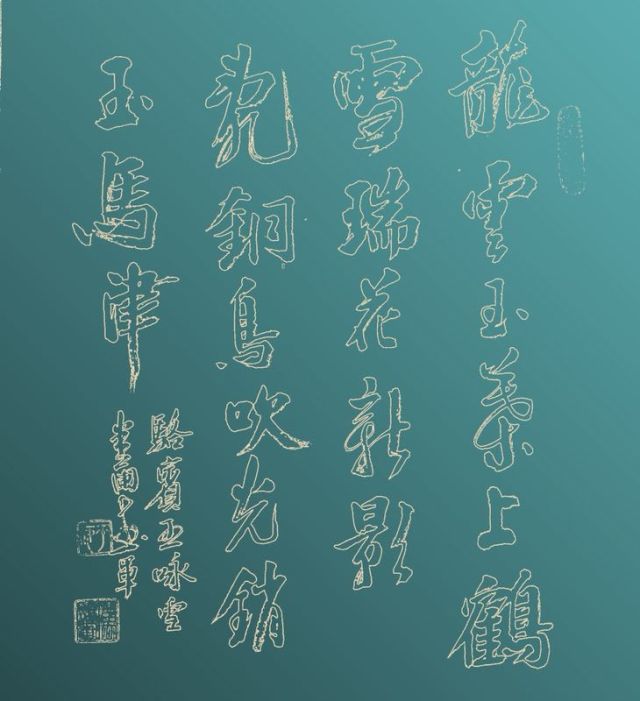 龍雲玉葉上鶴
雪瑞花新影
亂銅烏吹光銷
玉馬津
駱賓王咏雪
軍